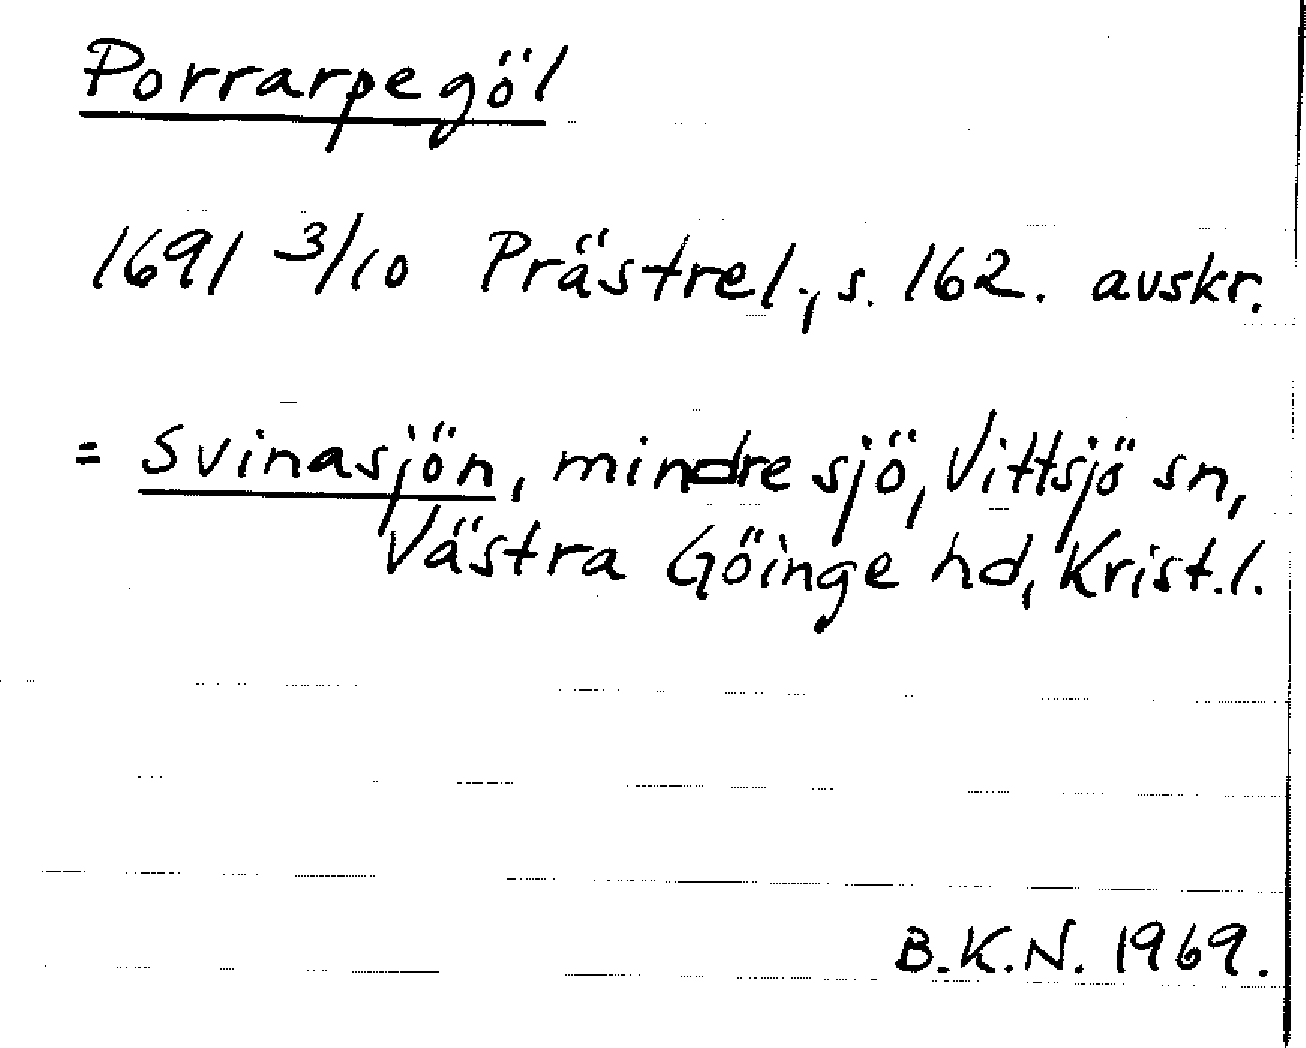 Porrarpegöl
1691 3/10 Prästrel., s. 162. avskr.
= Svinasjön, mindre sjö, Vittsjö sn,
Västra Göinge hd, Krist.l.
B.K.N. 1969.